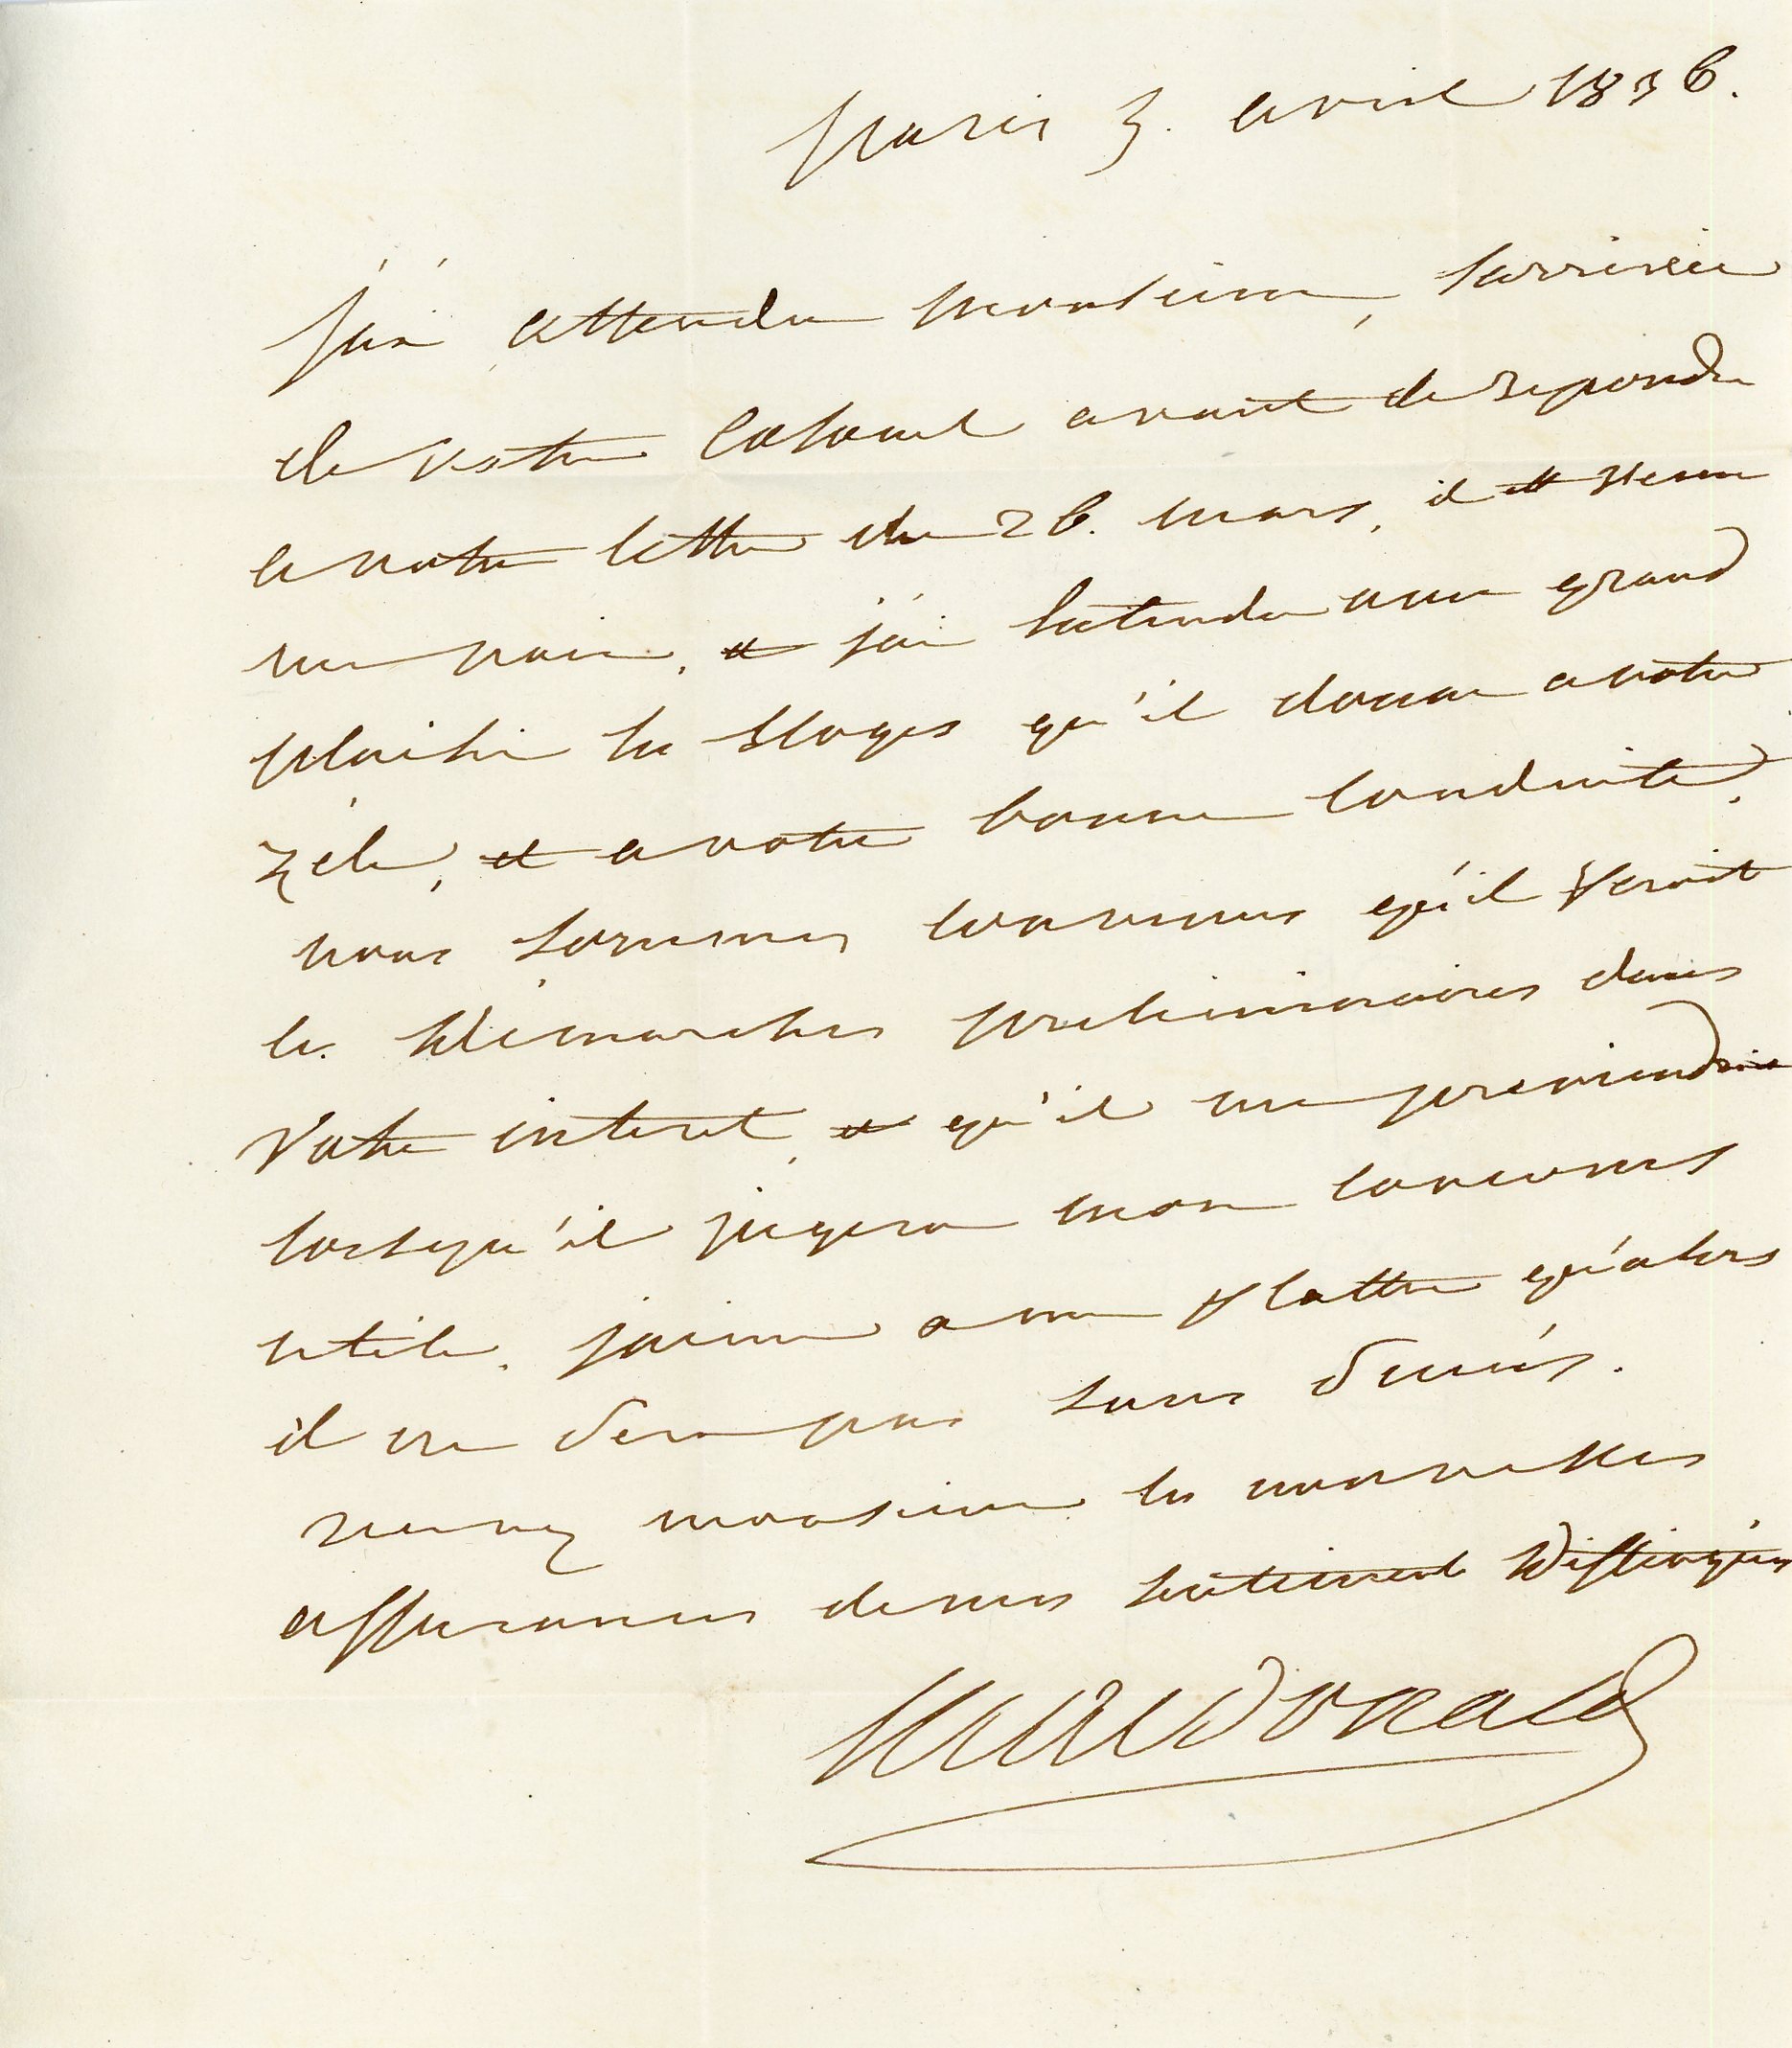 Paris 3. avril 1836.
j'ai attendu monsieur, l'arrivée
de votre Colonel avant de repondre
a votre lettre du 26. mars, il est venu
me voir, et j'ai entendu avec grand
plaisir les Eloges qu'il donne a votre
zéle, et a votre bonne Conduite,
nous sommes convenus qu'il feroit
les démarches preliminaires dans
Votre interet, et qu'il me previendroit
lorsqu'il jugera mon concours
utile. j'aime a me flatter qu'alors
il ne sera pas sans succés.
recevez monsieur les nouvelles
assurances de mes sentiments distingués
Macdonald